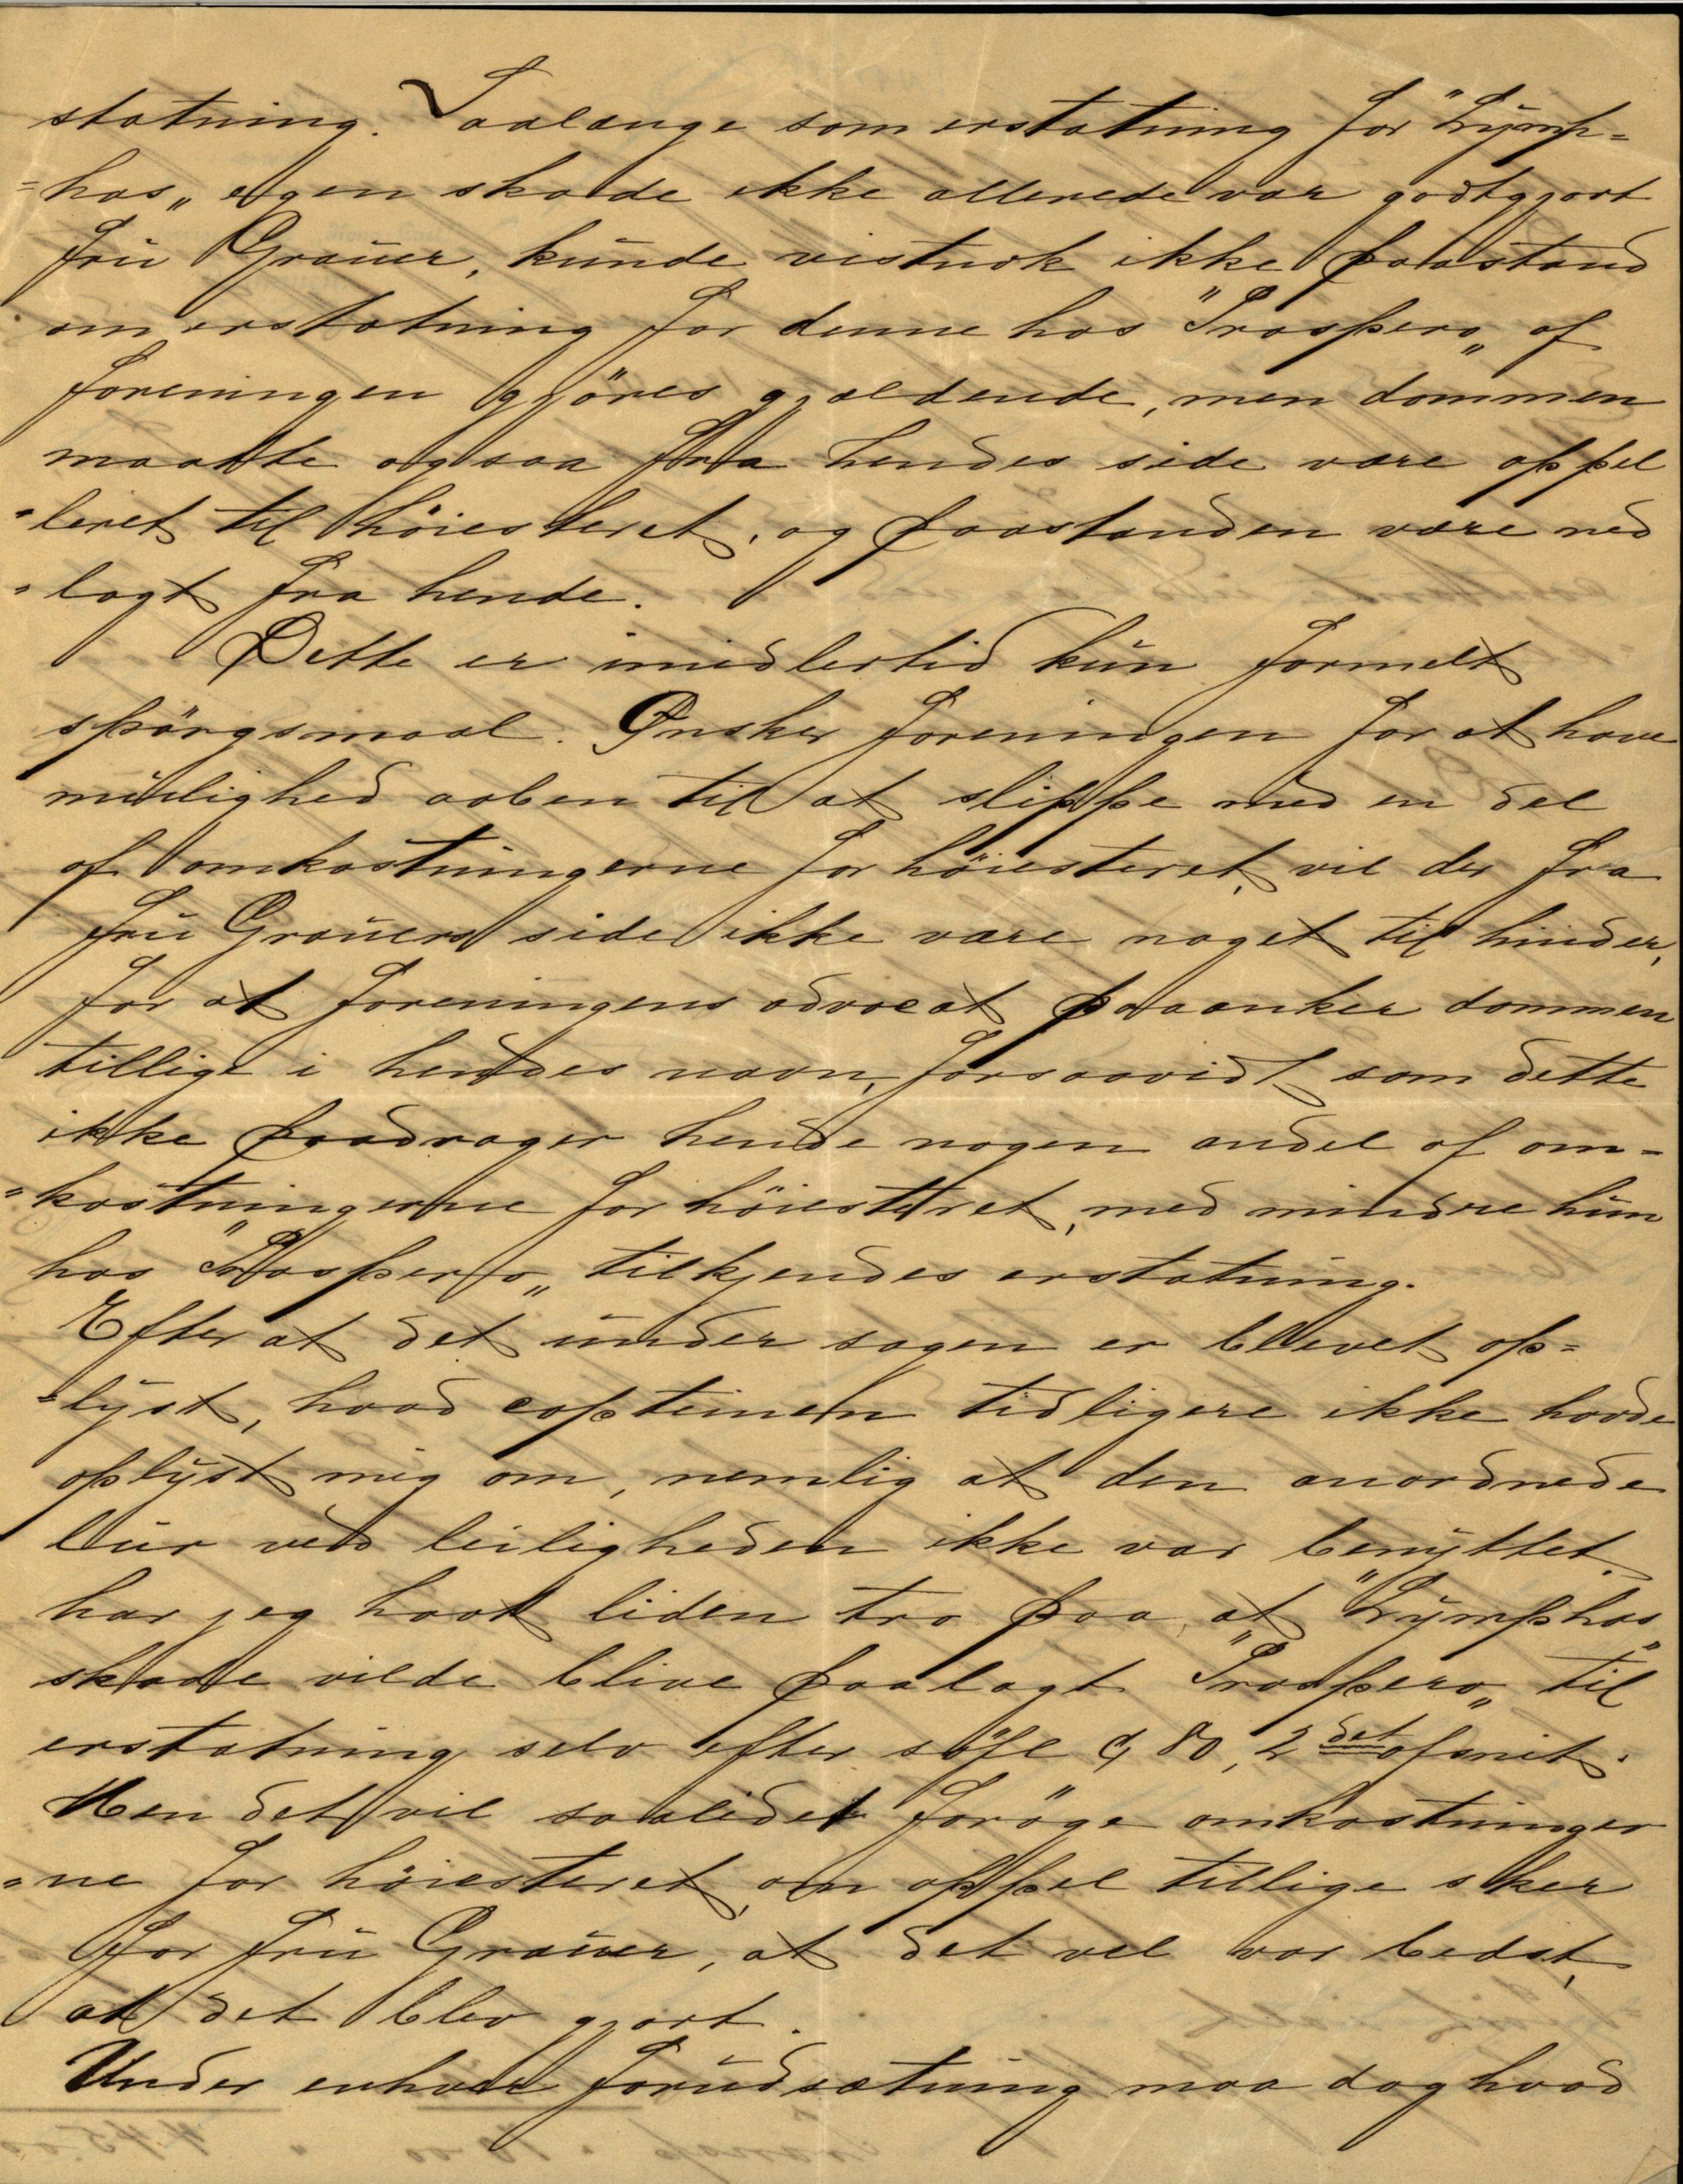 statning. Saalænge som erstatning for "Lymp=
=has„ egen skade ikke allerede var godtgjort
fru Graüer, kunde vistnok ikke paastand
om erstatning for denne hos "Prospero„ af
foreningen gjöres gjældende, men dommen
maatte ogsaa fra hendes side være appel
=leret til höiesteret, og paastanden være ned
=lagt fra hende.
Dette er imidlertid kun formelt
spörgsmaal. Ønsker foreningen for at have
mulighed aaben til at slippe med en del
af omkostningerne for höiesteret, vil der fra
fru Graüers side ikke være noget til hinder,
for at foreningens advocat paaanker dommen
tillige i hendes navn, forsaavidt som dette
ikke paadrager hende nogen andel af om=
=kostningerne for höiesteret, med mindre hun
hos "Prospero„ tilkjendes erstatning.
Efter at det under sagen er blevet op=
=lyst, hvad capteinen tidligere ikke havde
oplyst mig om, nemlig at den anordnede
lur ved leiligheden ikke var benyttet,
har jeg havt liden tro paa, at "Lymphas„
skade vilde blive paalagt "Prospero„ til
erstatning selv efter söfl § 80, 2det afsnit.
Men det vil saalidet foröge omkostninger
=ne for höiesteret, om appel tillige sker
for fru Graüer, at det vel var bedst,
at det blev gjort.
Under enhver forudsætning maa dog hvad